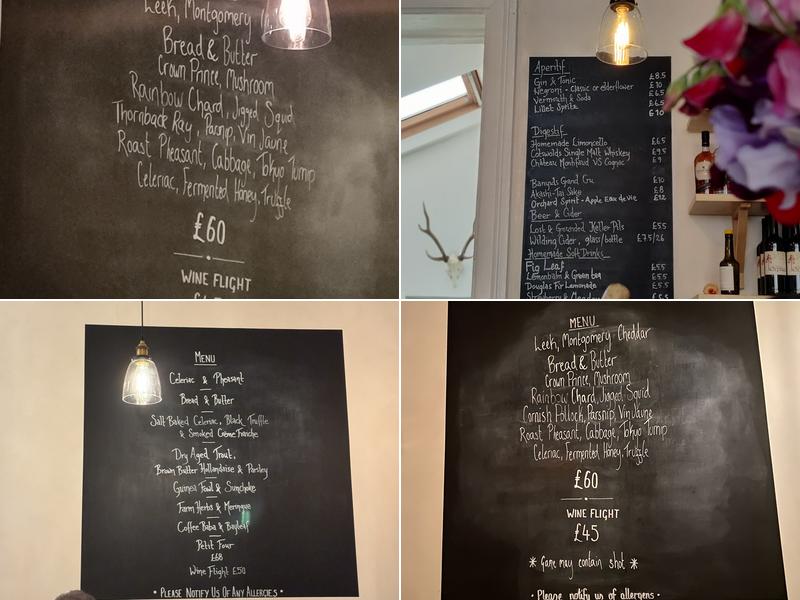 Leek, Montgomery
Bread & Butter
Crown Prince, Mushroom
Rainbow Chard, Jigged Squid
Thornback Ray, Parsnip, Vin Jaune
Roast Pheasant, Cabbage, Tokyo Turnip
Celeriac, Fermented Honey, Truffle
£60
WINE FLIGHT
Aperitif
Gin & Tonic £8.5
Negroni - Classic or elderflower £10
Vermouth & Soda £6.5
Lillet Spritz £6.5
£10
Digestif
Homemade Limoncello £6.5
Cotswolds Single Malt Whiskey £9.5
Château Montifaud VS Cognac £9
Banyuls Grand Cru £10
Akashi-Tai Sake £8
Orchard Spirit - Apple Eau de Vie £12
Beer & Cider
Lost & Grounded Keller Pils £5.5
Wilding Cider, glass/bottle £7.5/26
Homemade Soft Drinks
Fig Leaf £5.5
Lemonbalm & Green tea £5.5
Douglas Fir Lemonade £5.5
Strawberry & Meadow £5.5
MENU
Celeriac & Pheasant
Bread & Butter
Salt Baked Celeriac, Black Truffle
& Smoked Crème Fraiche
Dry Aged Trout,
Brown Butter Hollandaise & Parsley
Guinea Fowl & Sunchoke
Farm Herbs & Meringue
Coffee Baba & Bayleaf
Petit Four
£68
Wine Flight £50
• PLEASE NOTIFY US OF ANY ALLERGIES •
MENU
Leek, Montgomery Cheddar
Bread & Butter
Crown Prince, Mushroom
Rainbow Chard, Jigged Squid
Cornish Pollock, Parsnip, Vin Jaune
Roast Pheasant, Cabbage, Tokyo Turnip
Celeriac, Fermented Honey, Truffle
£60
WINE FLIGHT
£45
* Game may contain shot *
• Please notify us of allergens •